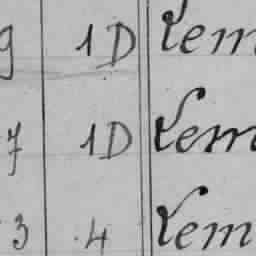 9 1D Lem
7 1D Lem
3 4 Lem